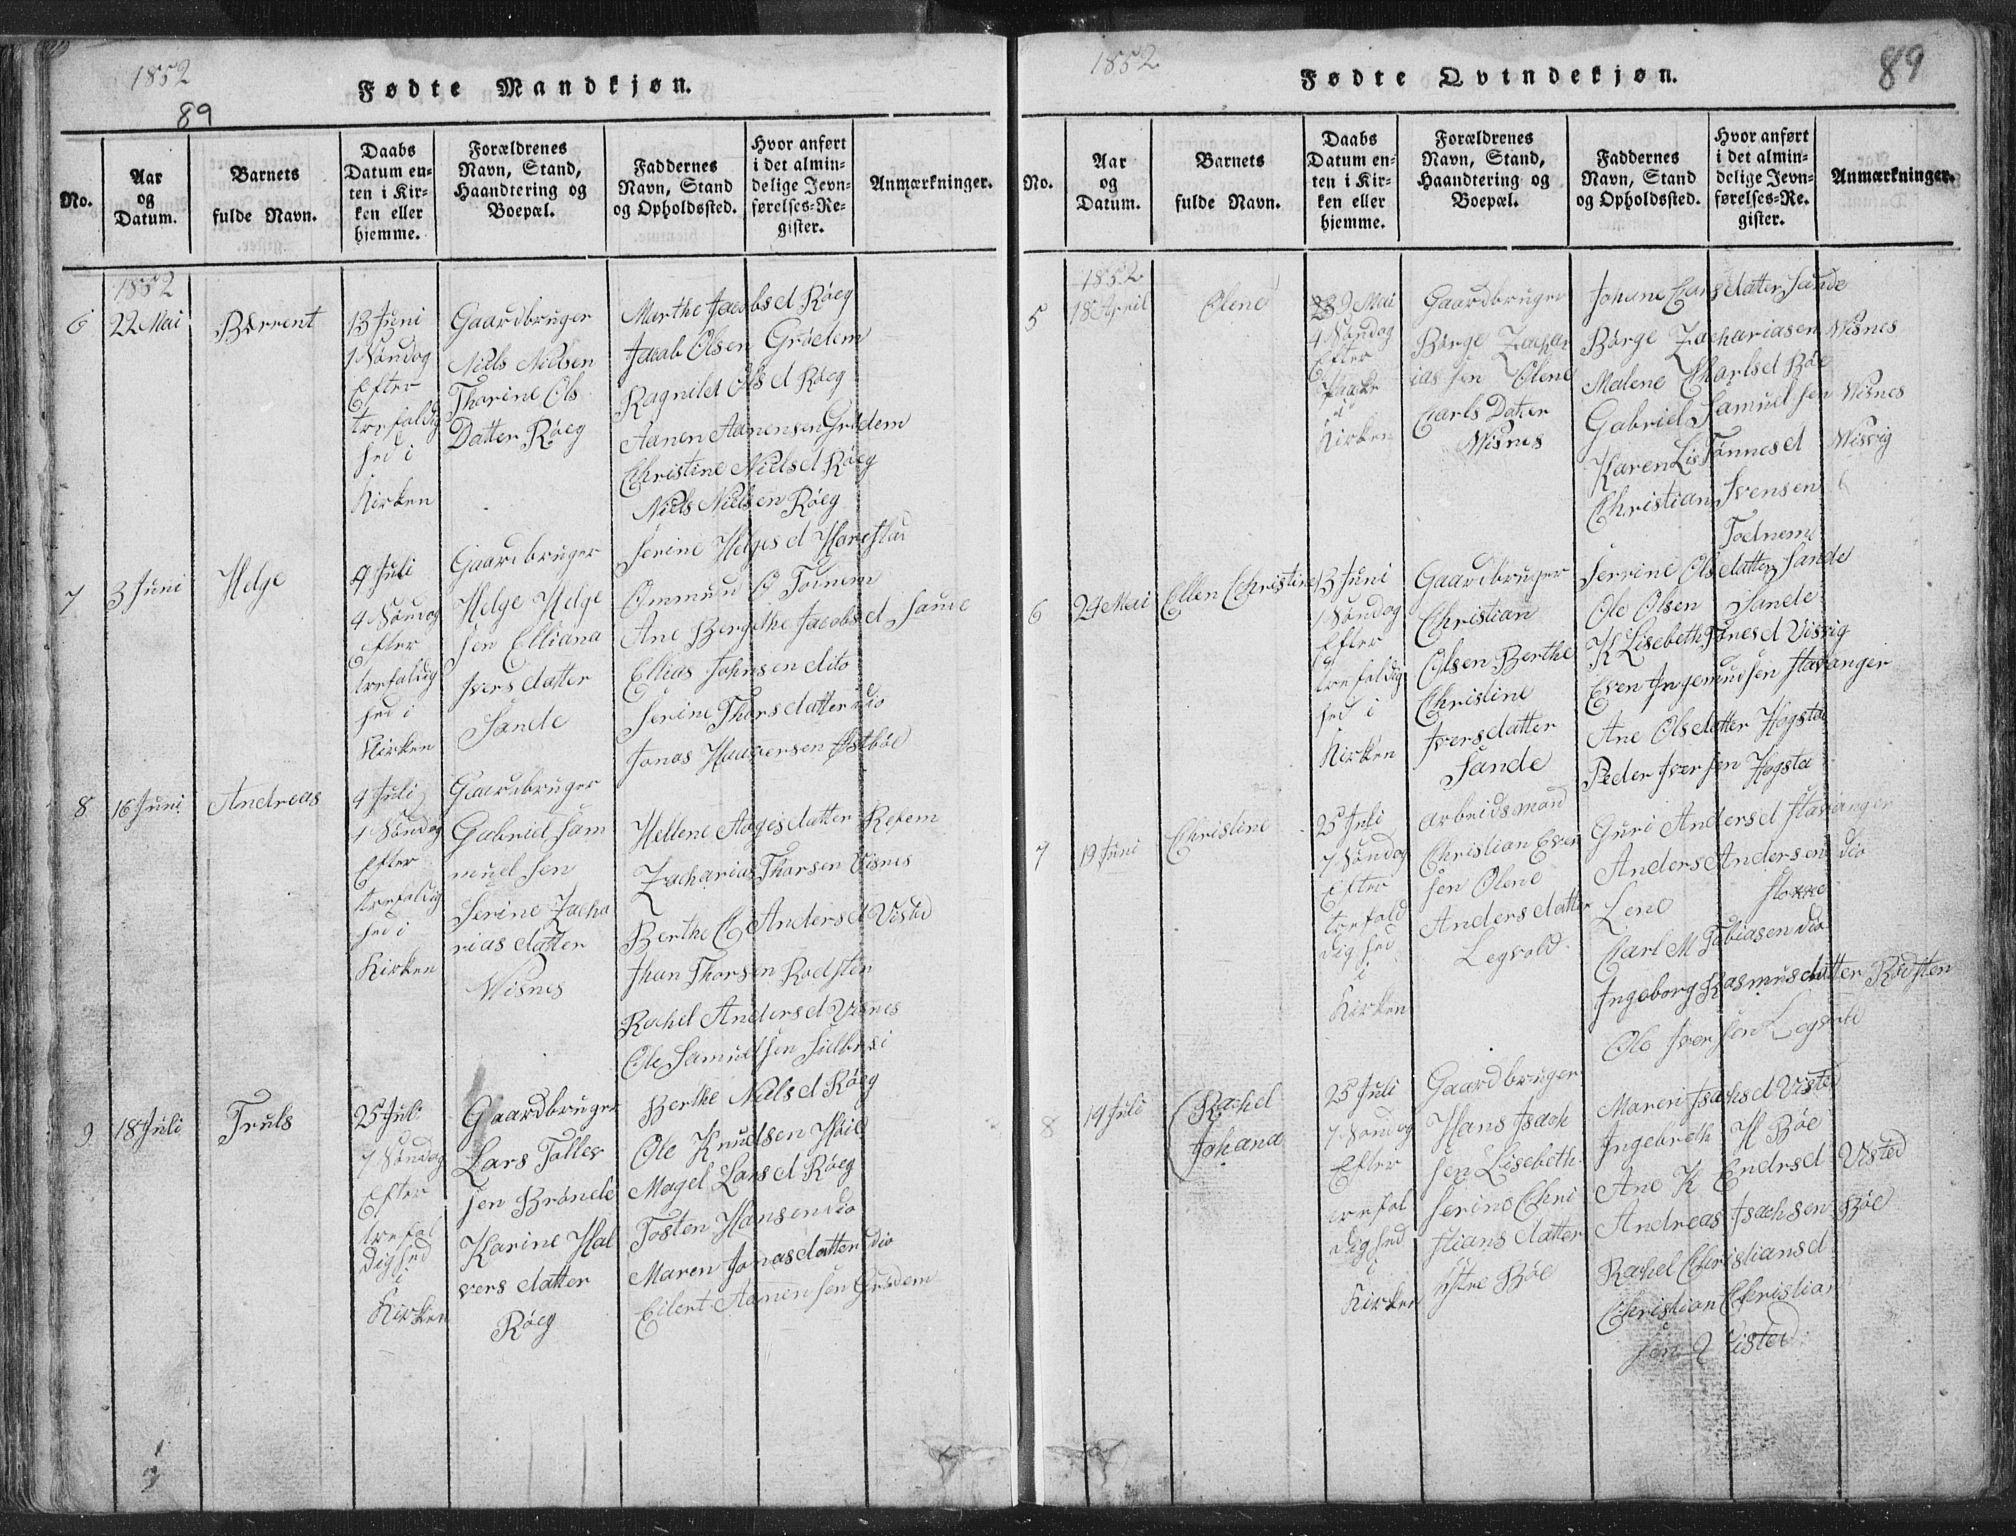 1852
Fødte Mandkjøn.
89
No.
Aar og Datum.
Barnets fulde Navn.
Daabs Datum enten i Kirken eller hjemme.
Forældrenes Navn, Stand, Haandtering og Boepæl.
Faddernes Navn, Stand og Opholdssted.
Hvor anført i det almindelige Jevnførelses-Register.
Anmærkninger.
1852
6
22 Mai
Børrent
13 Juni
1 Søndag
Efter
trefoldig
hed i
Kirken
Gaardbruger
Niels Nielsen
Thorine Ols
Datter Røeg
Marthe Jacobsd Røeg
Jacob Olsen Grødem
Ragnild Olsd Røeg
Aanen Aanensen Grødem
Christine Nielsd Røeg
Niels Nielsen Røeg
7
3 Juni
Helge
4 Juli
4 Søndag
Efter
trefoldig
hed i
Kirken
Gaardbruger
Helge Helge
sen Elliana
Ivers datter
Sande
Serine Helgesd Harestad
Ommund O Tounem
Ane Bergithe Jacobsd Sande
Ellias Johnsen dito
Serine Thorsdatter dio
Jonas Haaversen Østbøe
8
16 Juni
Andreas
4 Juli
1 Søndag
Efter
trefoldig
hed i
Kirken
Gaardbruger
Gabriel Sam
muel sen
Serine Zacha
rias datter
Wisnes
Hellene Aagesdatter Refem
Zacharias Thorsen Visnes
Berthe C Andersd Visted
Jhan Thorsen Rodsten
Rachel Andersd Visnes
Ole Samuelsen
9
18 Juli
Truls
25 Juli
7 Søndag
Efter
trefol
dighed
i
Kirken
Gaardbruger
Lars Tolley
sen Brønele
Karine Hal
vers datter
Røeg
Berthe Nielsd Røeg
Ole Knudsen Høie
Magel Larsd Røeg
Tosten Hansen dio
Maren Jonasdatter dio
Eilert Aanensen Grødem
1852
Fødte Qvindekjøn.
89
No.
Aar og Datum.
Barnets fulde Navn.
Daabs Datum enten i Kirken eller hjemme.
Forældrenes Navn, Stand, Haandtering og Boepæl.
Faddernes Navn, Stand og Opholdssted.
Hvor anført i det almindelige Jevnførelses-Register.
Anmærkninger.
1852
5
18 April
Olene
9 Mai
4 Søndag
Efter
Paaske
i
Kirken
Gaardbruger
Børge Zachar
ias sen Olene
Carls Datter
Wisnes
Johane Carsdatter Sande
Børge Zachariasen Wisnes
Malene Charlsd Bøe
Gabriel Samuelsen Wisnes
Karen Lis Tønnesd Wisvig
Christian Svensen
Todnem
6
24 Mai
Ellen Christine
13 Juni
1 Søndag
Efter
trefoldig
hed i
Kirken
Gaardbruger
Christian
Olsen Berthe
Christine
Iversdatter
Sande
Serrine Olsdatter Sande
Ole Olsen Sande
K Lisebeth Tønesd Visvig
Even Ingemundsen Stavanger
Ane Olsdatter Hogsta
Peder Iversen Hogsta
7
19 Juni
Christine
25 Juli
7 Søndag
Efter
trefold
dighed
i
Kirken
Arbeidsmand
Christian Even
sen Olene
Andersdatter
Legvold
Guri Andersd Stavanger
Anders Andersen dio
Lene
Carl M Tobiasen dio
Ingeborg Rasmusdatter Rødsten
Ole Iversen Legvold
8
19 Juli
Rachel
Johana
25 Juli
7 Søndag
Efter
trefol
dighed
i
Kirken
Gaardbruger
Hans Isach
sen Lisebeth
Serine Chri
stians datter
ystre Bøe
Maren Isachsd Visted
Ingebreth H Bøe
Ane K Endresd Visted
Andreas Isachsen Bøe
Rachel Christiansd
Christian Christian
sen Visted